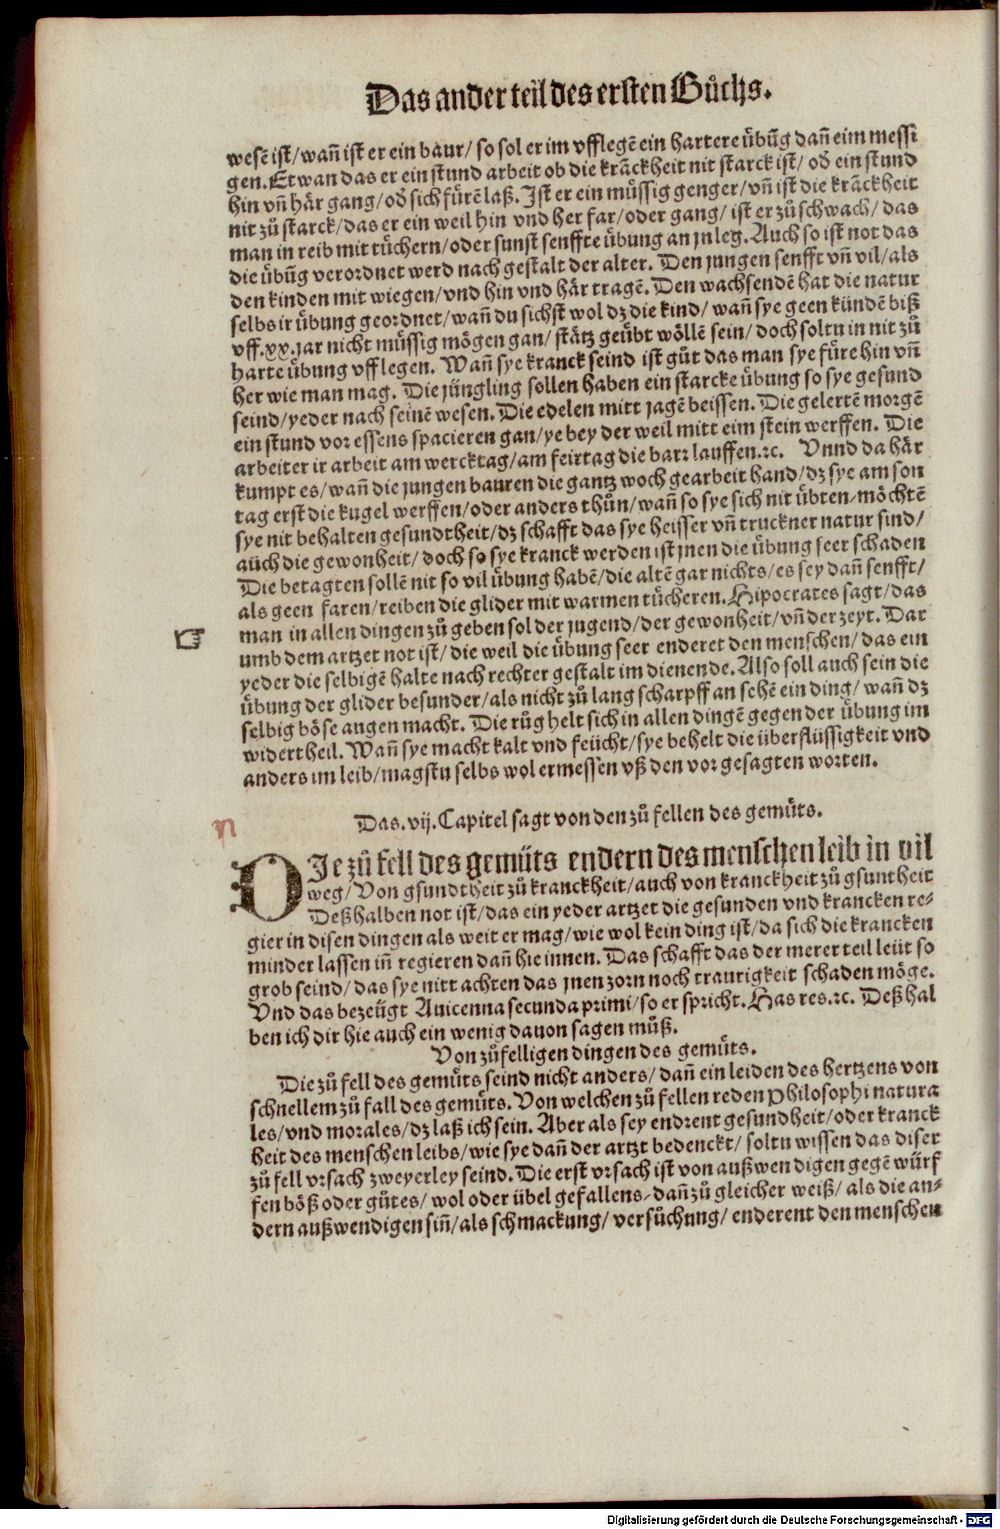 Das ander teil des ersten Bůchs.
wesẽ ist/ wañ ist er ein baur/ so sol er im vfflegẽ ein hartere übũg dañ eim messi
gen. Etwan das er ein stund arbeit ob die krãckheit nit starck ist/ oď ein stund
hin vñ här gang/ oď sich fürẽ laß. Ist er ein müssig genger/ vñ ist die krãckheit
nit zů starck/ das er ein weil hin vnd her far/ oder gang/ ist er zů schwach/ das
man in reib mit tüchern/ oder sunst senffte übung an jn leg. Auch so ist not das
die übũg verordnet werd nach gestalt der alter. Den jungen senfft vñ vil/ als
den kinden mit wiegen/ vnd hin vnd här tragẽ. Den wachsendẽ hat die natur
selbs ir übung geordnet/ wañ du sichst wol dz die kind/ wañ sye geen kündẽ biß
vff .xx. jar nicht müssig mögen gan/ stätz geübt wöllẽ sein/ doch soltu in nit zů
harte übung vfflegen. Wañ sye kranck seind ist gůt das man sye füre hin vñ
her wie man mag. Die jüngling sollen haben ein starcke übung so sye gesund
seind/ yeder nach seinẽ wesen. Die edelen mitt jagẽ beissen. Die gelertẽ morgẽ
ein stund vor essens spacieren gan/ ye bey der weil mitt eim stein werffen. Die
arbeiter ir arbeit am wercktag/ am feirtag die barz lauffen.ꝛc. Vnnd da här
kumpt es/ wañ die jungen bauren die gantz woch gearbeit hand/ dz sye am son
tag erst die kugel werffen/ oder anders thůn/ wañ so sye sich nit übten/ möchtẽ
sye nit behalten gesundtheit/ dz schafft das sye heisser vñ truckner natur sind/
auch die gewonheit/ doch so sye kranck werden ist jnen die übung seer schaden
Die betagten sollẽ nit so vil übung habẽ/ die altẽ gar nichts/ es sey dañ senfft/
als geen faren/ reiben die glider mit warmen tücheren. Hipocrates sagt/ das
man in allen dingen zů geben sol der jugend/ der gewonheit/ vñ der zeyt. Dar
umb dem artzet not ist/ die weil die übung seer enderet den menschen/ das ein
yeder die selbigẽ halte nach rechter gestalt im dienende. Also soll auch sein die
übung der glider besunder/ als nicht zů lang scharpff an sehẽ ein ding/ wañ dz
selbig böse augen macht. Die růg helt sich in allen dingẽ gegen der übung im
widertheil. Wañ sye macht kalt vnd feücht/ sye behelt die überflüssigkeit vnd
anders im leib/ magstu selbs wol ermessen vß den vor gesagten worten.
Das .vij. Capitel sagt von den zů fellen des gemüts.
DIe zů fell des gemüts endern des menschen leib in vil
weg/ Von gsundtheit zů kranckheit/ auch von kranckheit zů gsuntheit
Deßhalben not ist/ das ein yeder artzet die gesunden vnd krancken re-
gier in disen dingen als weit er mag/ wie wol kein ding ist/ da sich die krancken
minder lassen iñ regieren dañ hie innen. Das schafft das der merer teil leüt so
grob seind/ das sye nitt achten das jnen zorn noch traurigkeit schaden möge.
Vnd das bezeügt Auicenna secunda primi/ so er spricht. Has res.ꝛc. Deßhal
ben ich dir hie auch ein wenig dauon sagen můß.
Von zůfelligen dingen des gemüts.
Die zů fell des gemüts seind nicht anders/ dañ ein leiden des hertzens von
schnellem zů fall des gemüts. Von welchen zů fellen reden Philosophi natura
les/ vnd morales/ dz laß ich sein. Aber als sey endrent gesundheit/ oder kranck
heit des menschen leibs/ wie sye dañ der artzt bedenckt/ soltu wissen das diser
zů fell vrsach zweyerley seind. Die erst vrsach ist von außwendigen gegẽ würf
fen böß oder gůtes/ wol oder übel gefallens/ dañ zů gleicher weiß/ als die an-
dern außwendigen siñ/ als schmackung/ versůchung/ enderent den menschen
Digitalisierung gefördert durch die Deutsche Forschungsgemeinschaft - DFG